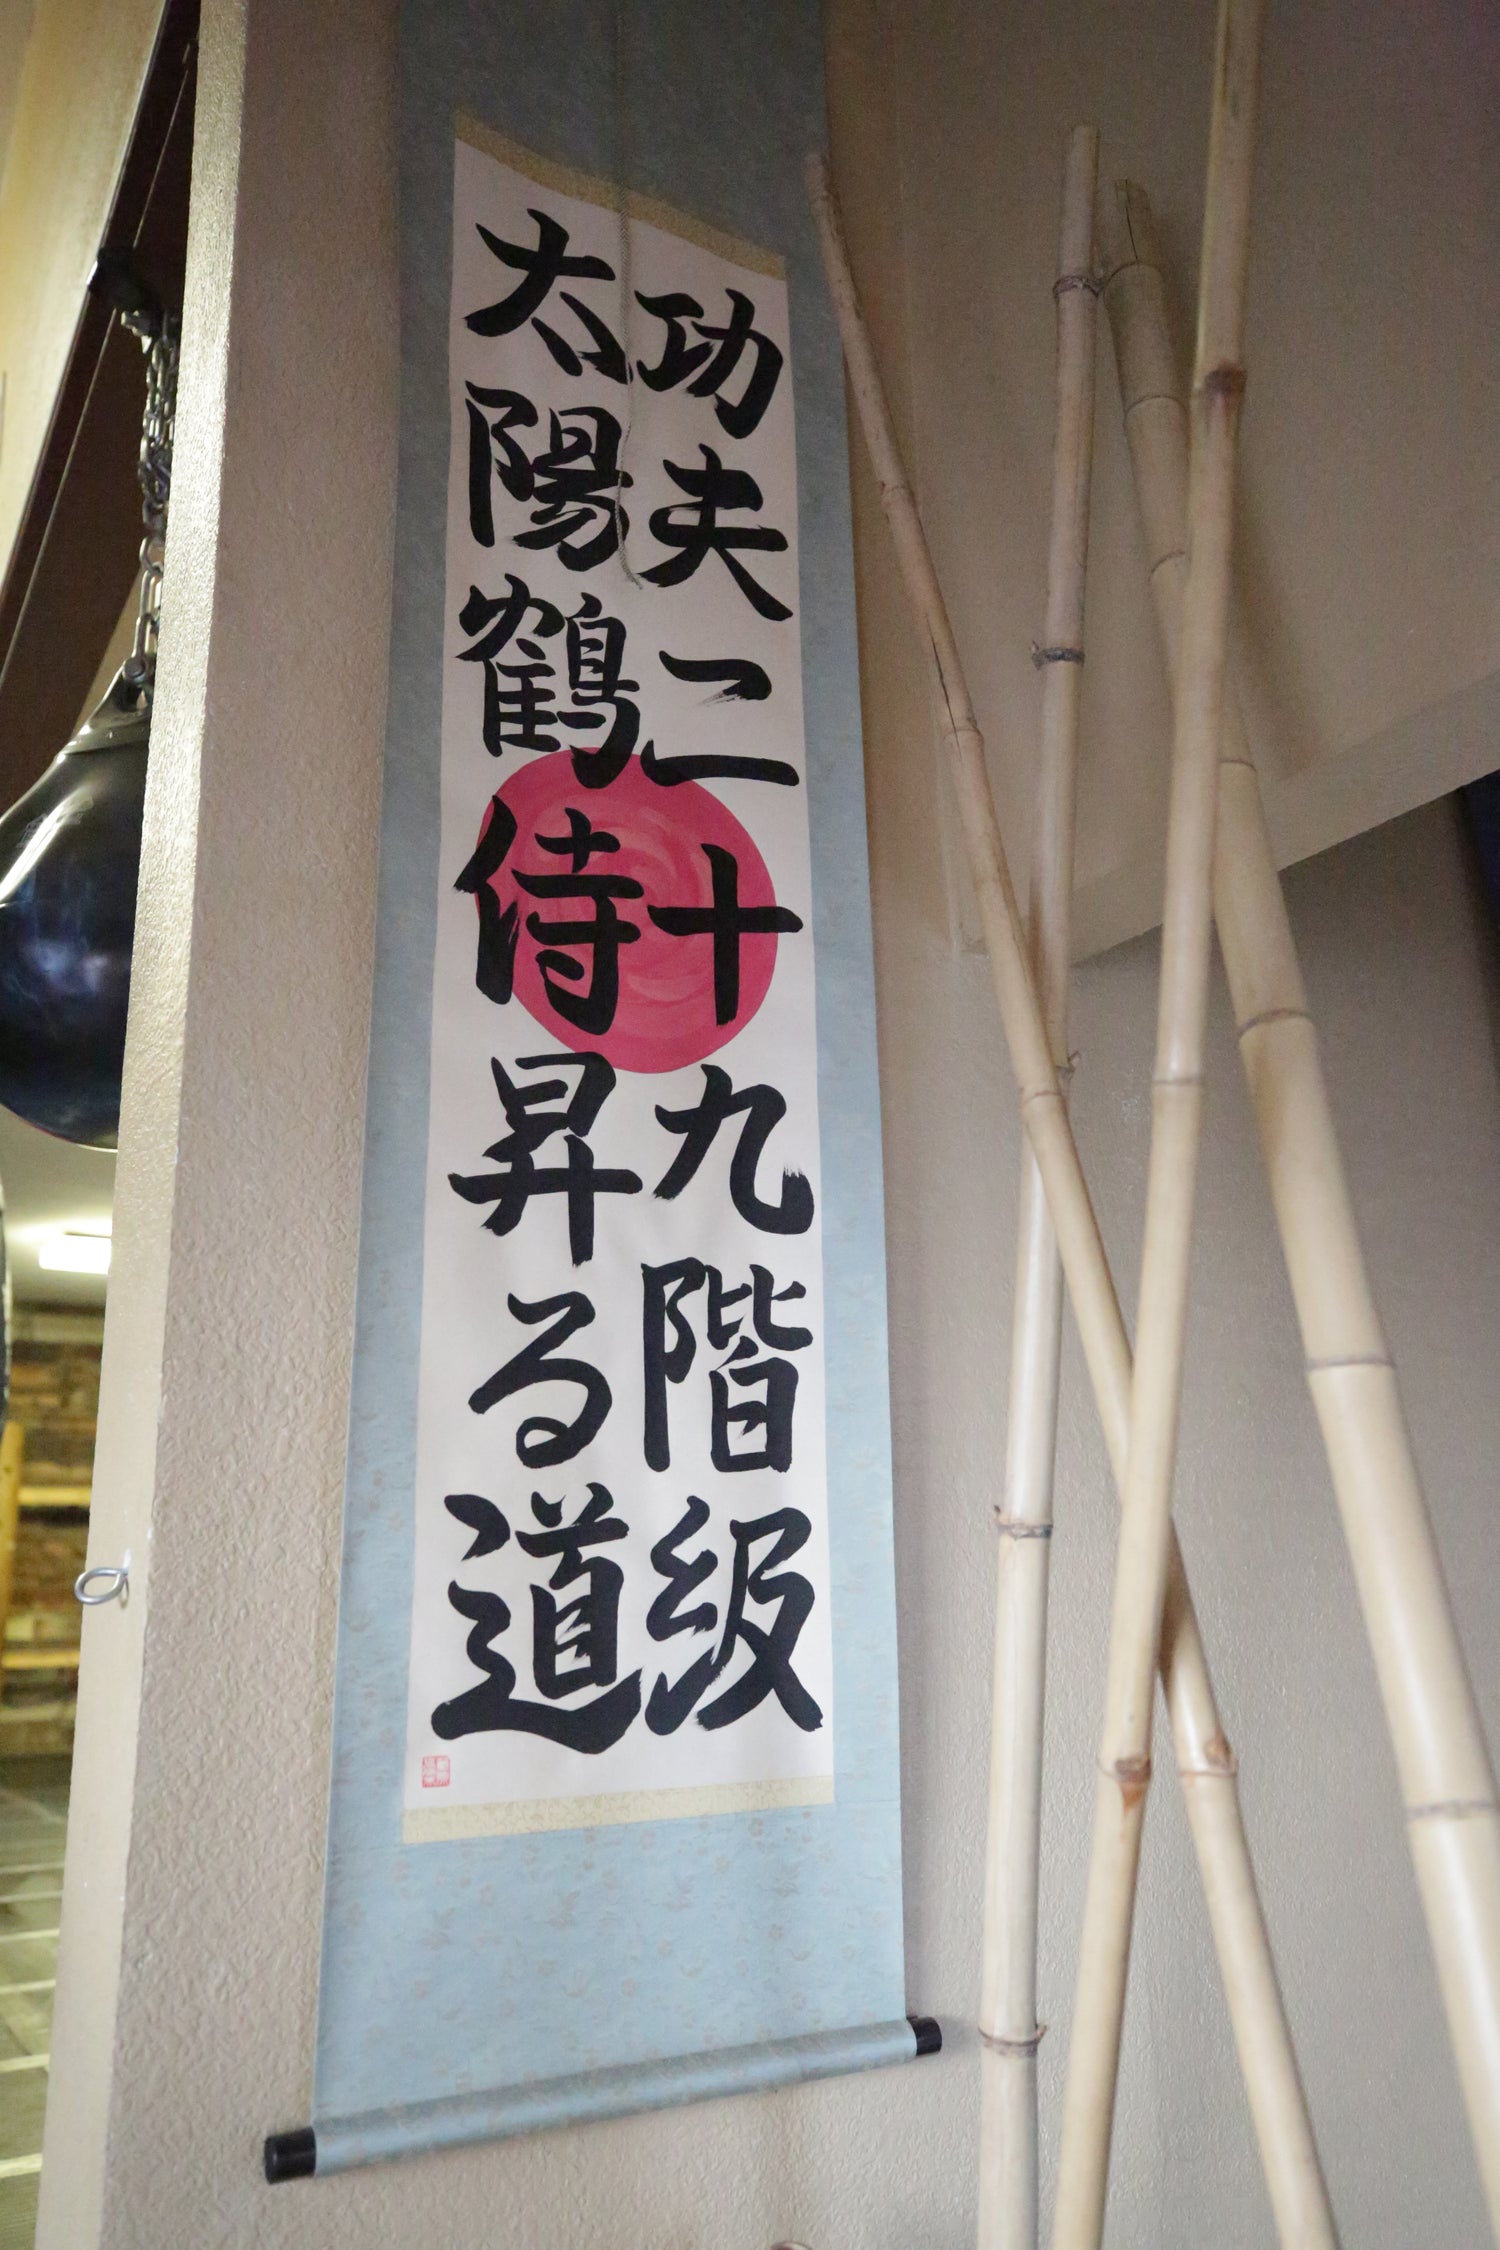 功夫二十九階級
太陽鶴侍昇る道